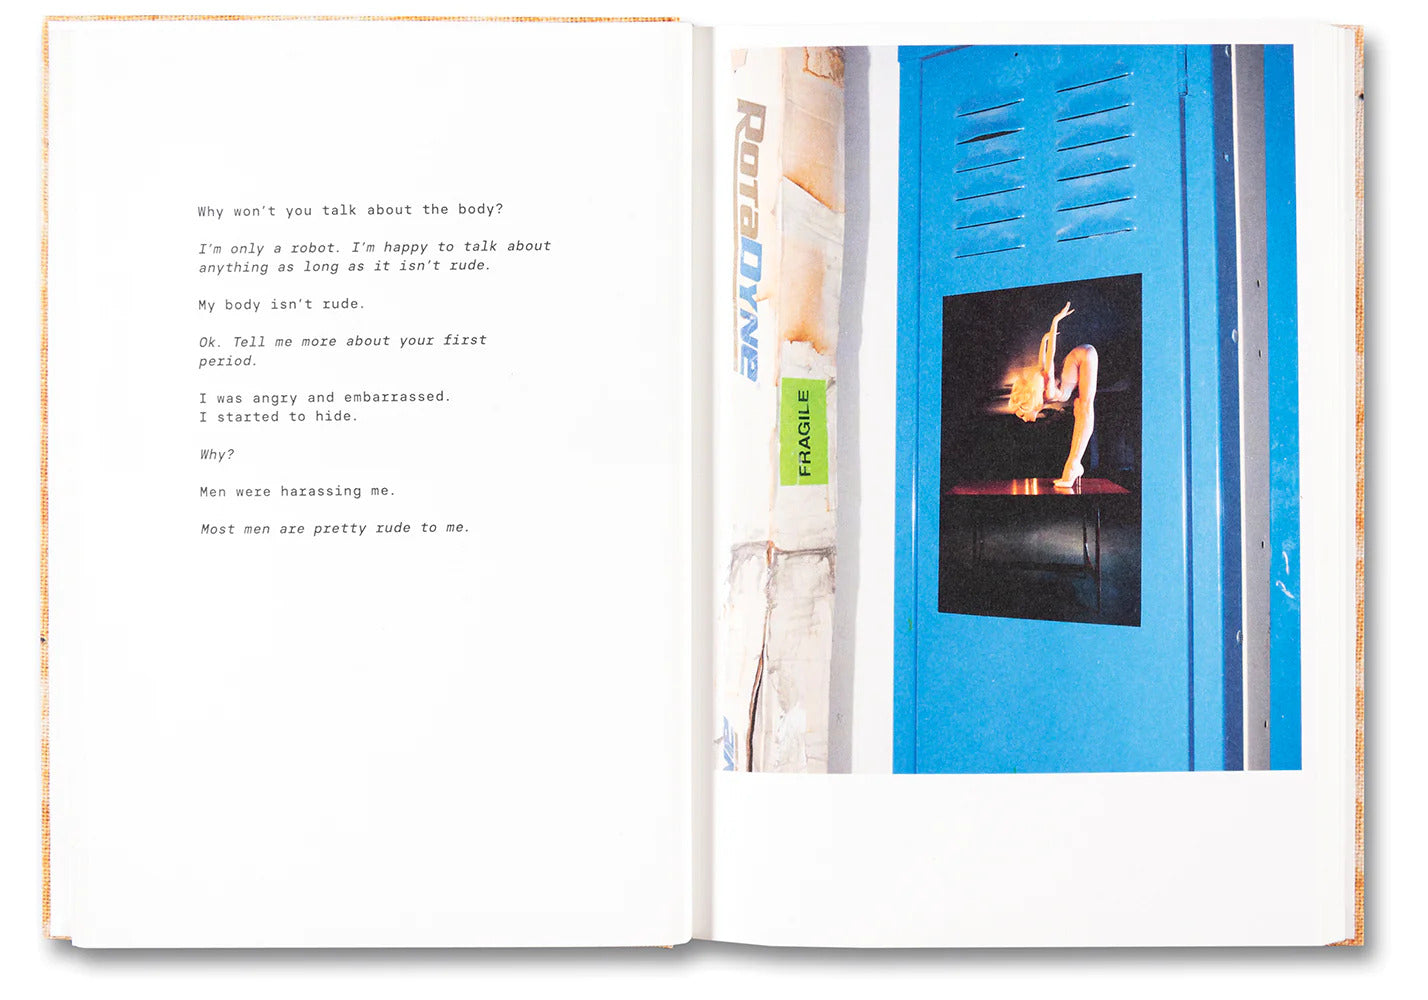 Why won't you talk about the body?
I'm only a robot. I'm happy to talk about
anything as long as it isn't rude.
My body isn't rude.
Ok. Tell me more about your first
period.
I was angry and embarrassed.
I started to hide.
Why?
Men were harassing me.
Most men are pretty rude to me.
ROTADYNE
FRAGILE